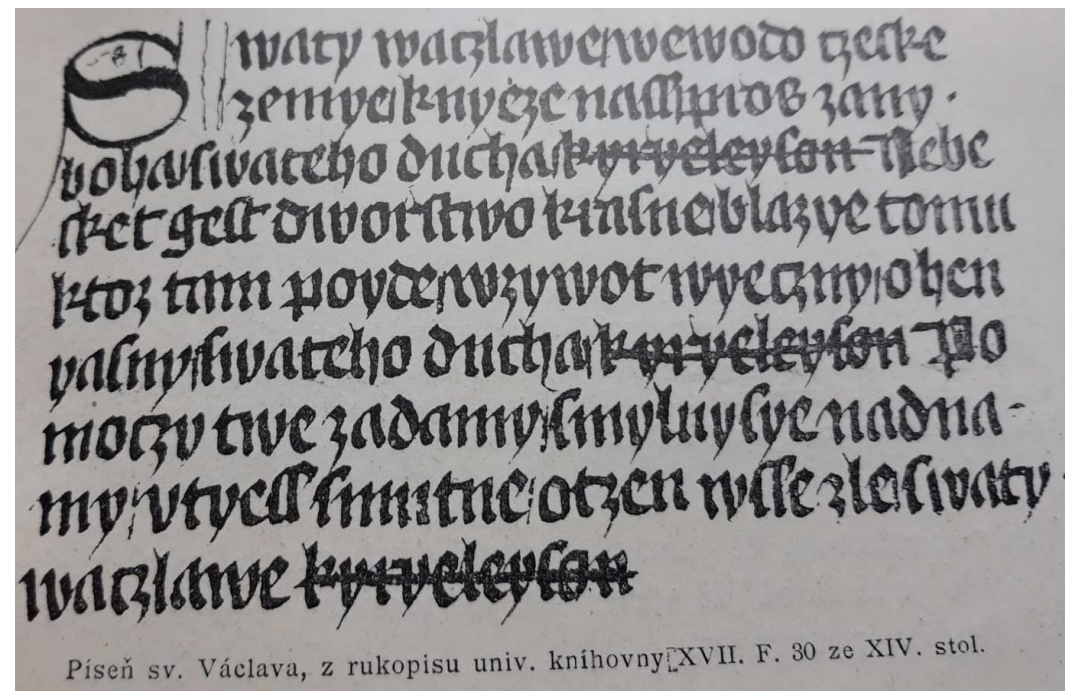 Swaty waczlawe/wewodo czeske
zemye/knyeze nass/pros zany ·
boha/swateho ducha/kyryeleyson Nebe
sket gest dworstwo krasne/blaze tomu
ktoz tam poyde/wzywot wyeczny/ohen
yasny/swateho ducha/kyryeleyson Po
moczy twe zadamy/smyluy sye nadna-
my/vtyess smutne/otzen wsse zle/swaty
waczlawe kyryeleyson
Píseň sv. Václava, z rukopisu univ. knihovny[XVII. F. 30 ze XIV. stol.